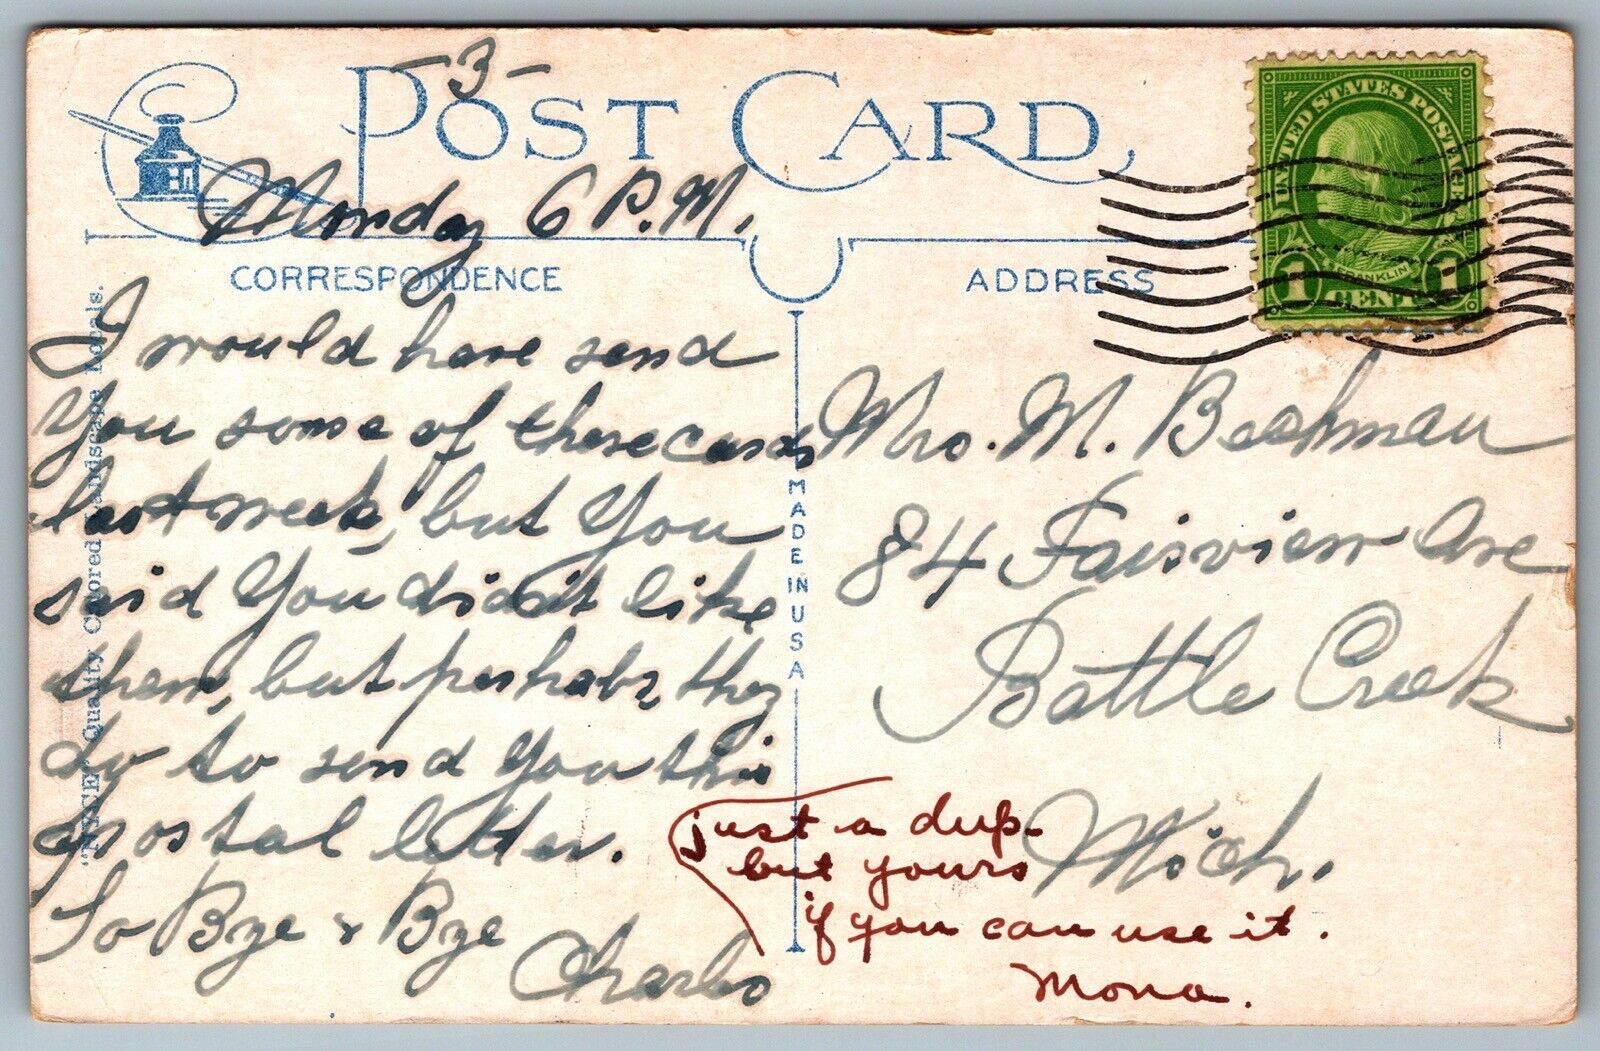 -3-
POST CARD
Monday 6 P.M.
CORRESPONDENCE
ADDRESS
I would have send
You some of these cards
last week, but You
said You didn't like
them, but perhabs, they
do to send You this
postal letter.
So Bye & Bye
Charlo
UNITED STATES POSTAGE
FRANKLIN
1 CENT 1
Mrs. M. Beahman
84 Fairview Ave
Battle Creek
Mich.
just a dup-
but yours
if you can use it.
Mona.
MADE IN USA
Quality Colored Landscape Locals.